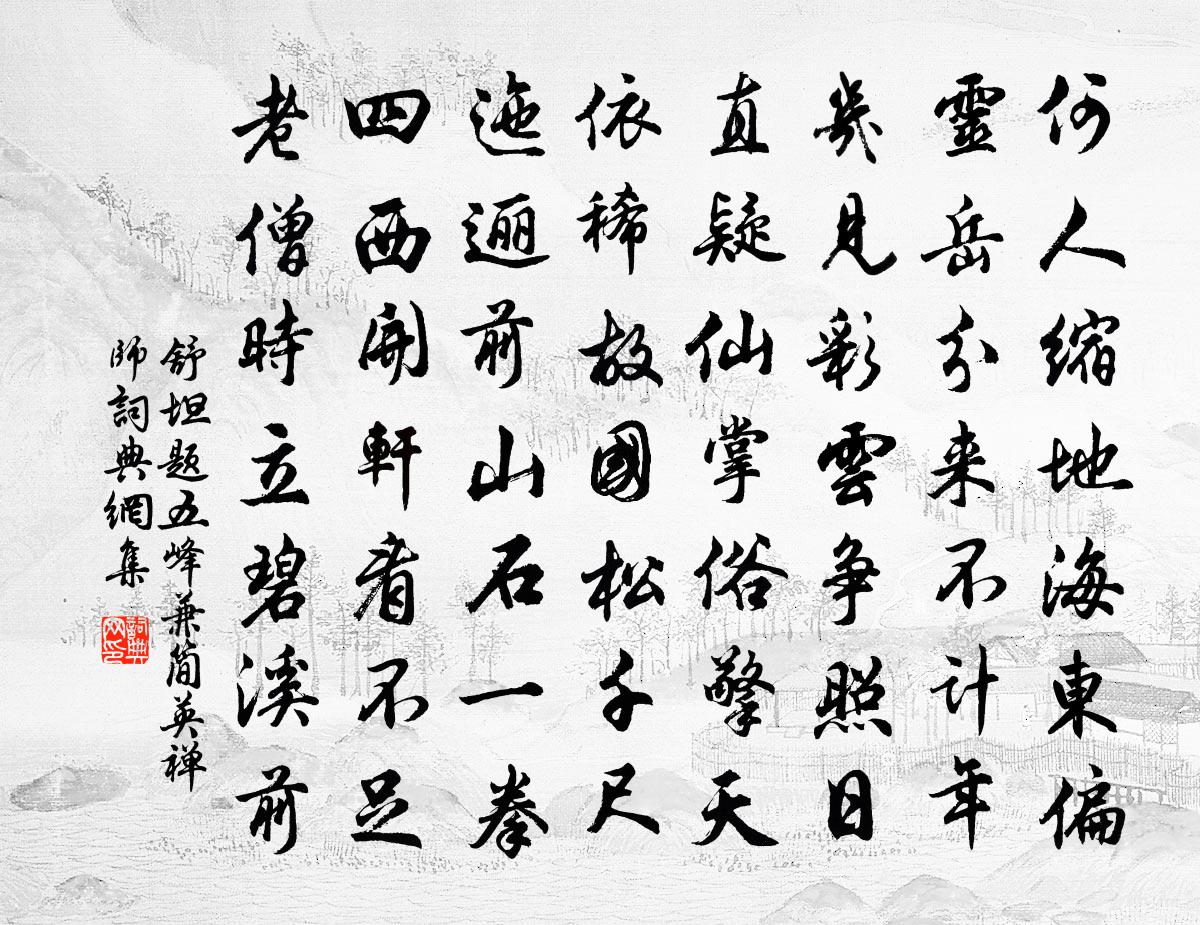 何人縮地海東偏
靈岳分来不計年
幾見彩雲争照日
直疑仙掌俗擎天
依稀故國松千尺
迤逦前山石一拳
四西開軒看不足
老僧時立碧溪前
舒坦题五峰兼简英禅
師詞典網集
詞典网印